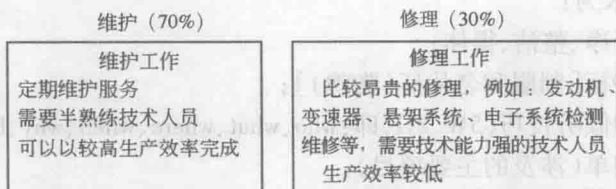 维护（70%）
维护工作
定期维护服务
需要半熟练技术人员
可以以较高生产效率完成
修理（30%）
修理工作
比较昂贵的修理，例如：发动机、
变速器、悬架系统、电子系统检测
维修等，需要技术能力强的技术人员
生产效率较低